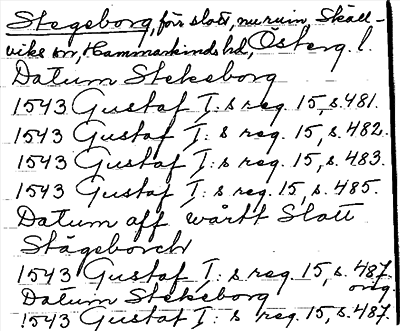 Stegeborg, förr slott, nu ruin, Skäll-
viks sn, Hammarkinds hd, Österg. l.
Datum Stekeborg
1543 Gustaf I:s reg. 15, s. 481.
1543 Gustaf I:s reg. 15, s. 482.
1543 Gustaf I:s reg. 15, s. 483.
1543 Gustaf I:s reg. 15, s. 485.
Datum aff wårtt Slott
Stägeborch
1543 Gustaf I:s reg. 15, s. 487.
orig.
Datum Stekeborg
1543 Gustaf I:s reg. 15, s. 487.